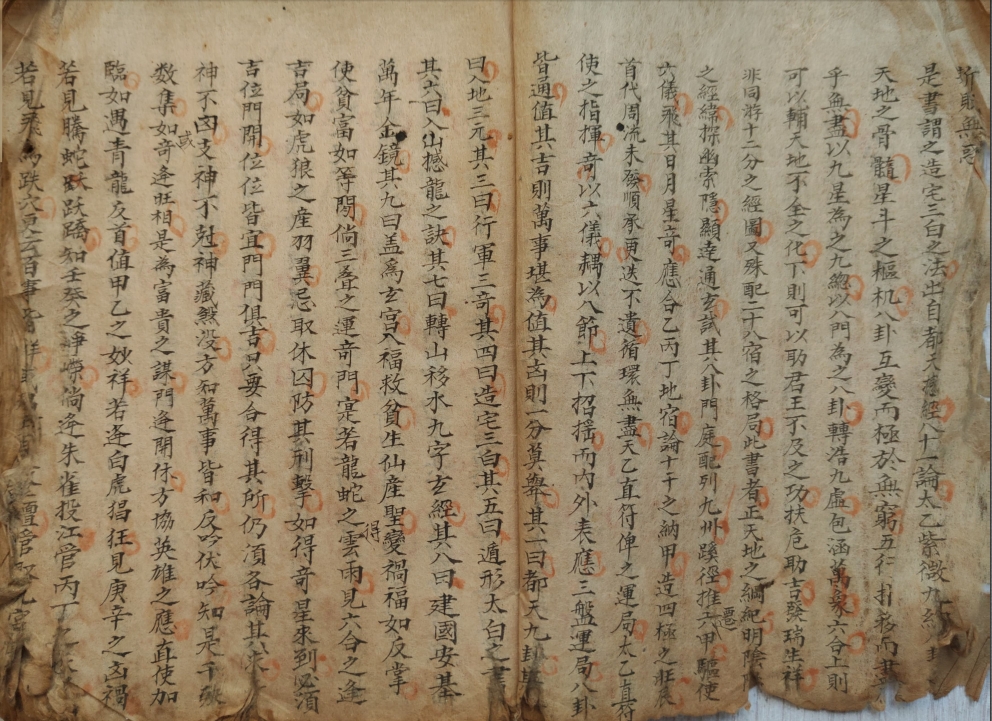 斬眼無惑
是書謂之造宅三白之法出自都天舊經八十一論太乙紫微九經
天地之骨髓星斗之樞机八卦互變而極於無窮五行推移而
乎無盡以九星為之九總以八門為之八卦轉浩九虛包涵萬象六合上則
可以輔天地不全之化下則可以助君王不及之功扶危助吉發瑞生祥
非同游十二分之經圖又殊配二十八宿之格局此書者正天地之綱紀明陰
之經緯探幽索隱顯達通玄試其八卦門庭配列九州蹊徑推六甲驅使
六儀飛其日月星奇應合乙丙丁地宿論十干之納甲造四極之壯
首代周流未發順承更迭不遺循環無盡天乙直符俾之運局太乙直符
使之指揮奇以六儀耦以八節上下招搖而內外表應三盤運局八卦
皆通值其吉則萬事堪為值其凶則一分莫舉其一曰都天九卦
曰人地三元其三曰行軍三奇其四曰造宅三白其五曰遁形太白之
其六曰入山撼龍之訣其七曰轉山移水九字玄經其八曰建國安基
萬年金鏡其九曰盖為玄宮八福救貧生仙産聖變禍福如反掌
使貧富如等閒倘三叠之運奇門寔若龍蛇之得雲雨見六合之逢
吉局如虎狼之産羽翼忌取休囚防其刑擊如得奇星來到必須
吉位門開位位皆宜門門俱吉只要合得其所仍須各論其
神不凶或支神不尅神藏煞没方知萬事皆和反吟伏吟知是千
数集如奇逢旺相是為富貴之謀門逢開休方協英雄之應直使加
臨如遇青龍反首值甲乙之妙祥若逢白虎猖狂見庚辛之凶禍
若見騰蛇跃跃蹻知壬癸之崢嶸倘逢朱雀投江管丙丁之
若見飛鳥跌穴更云百事皆祥